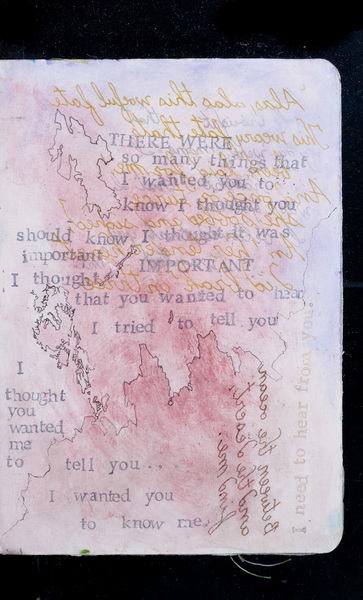 Alas, alas this woful fate
This weary fate that's
THERE WERE
so many things that
I wanted you to
know I thought you
should know I thought it was
important
IMPORTANT
I thought
that you wanted to hear
I tried to tell you
I
thought
you
wanted
me
to tell you ....
I wanted you
to know me.
Between the ocean
and the desert,
find me:
I need to hear from you.